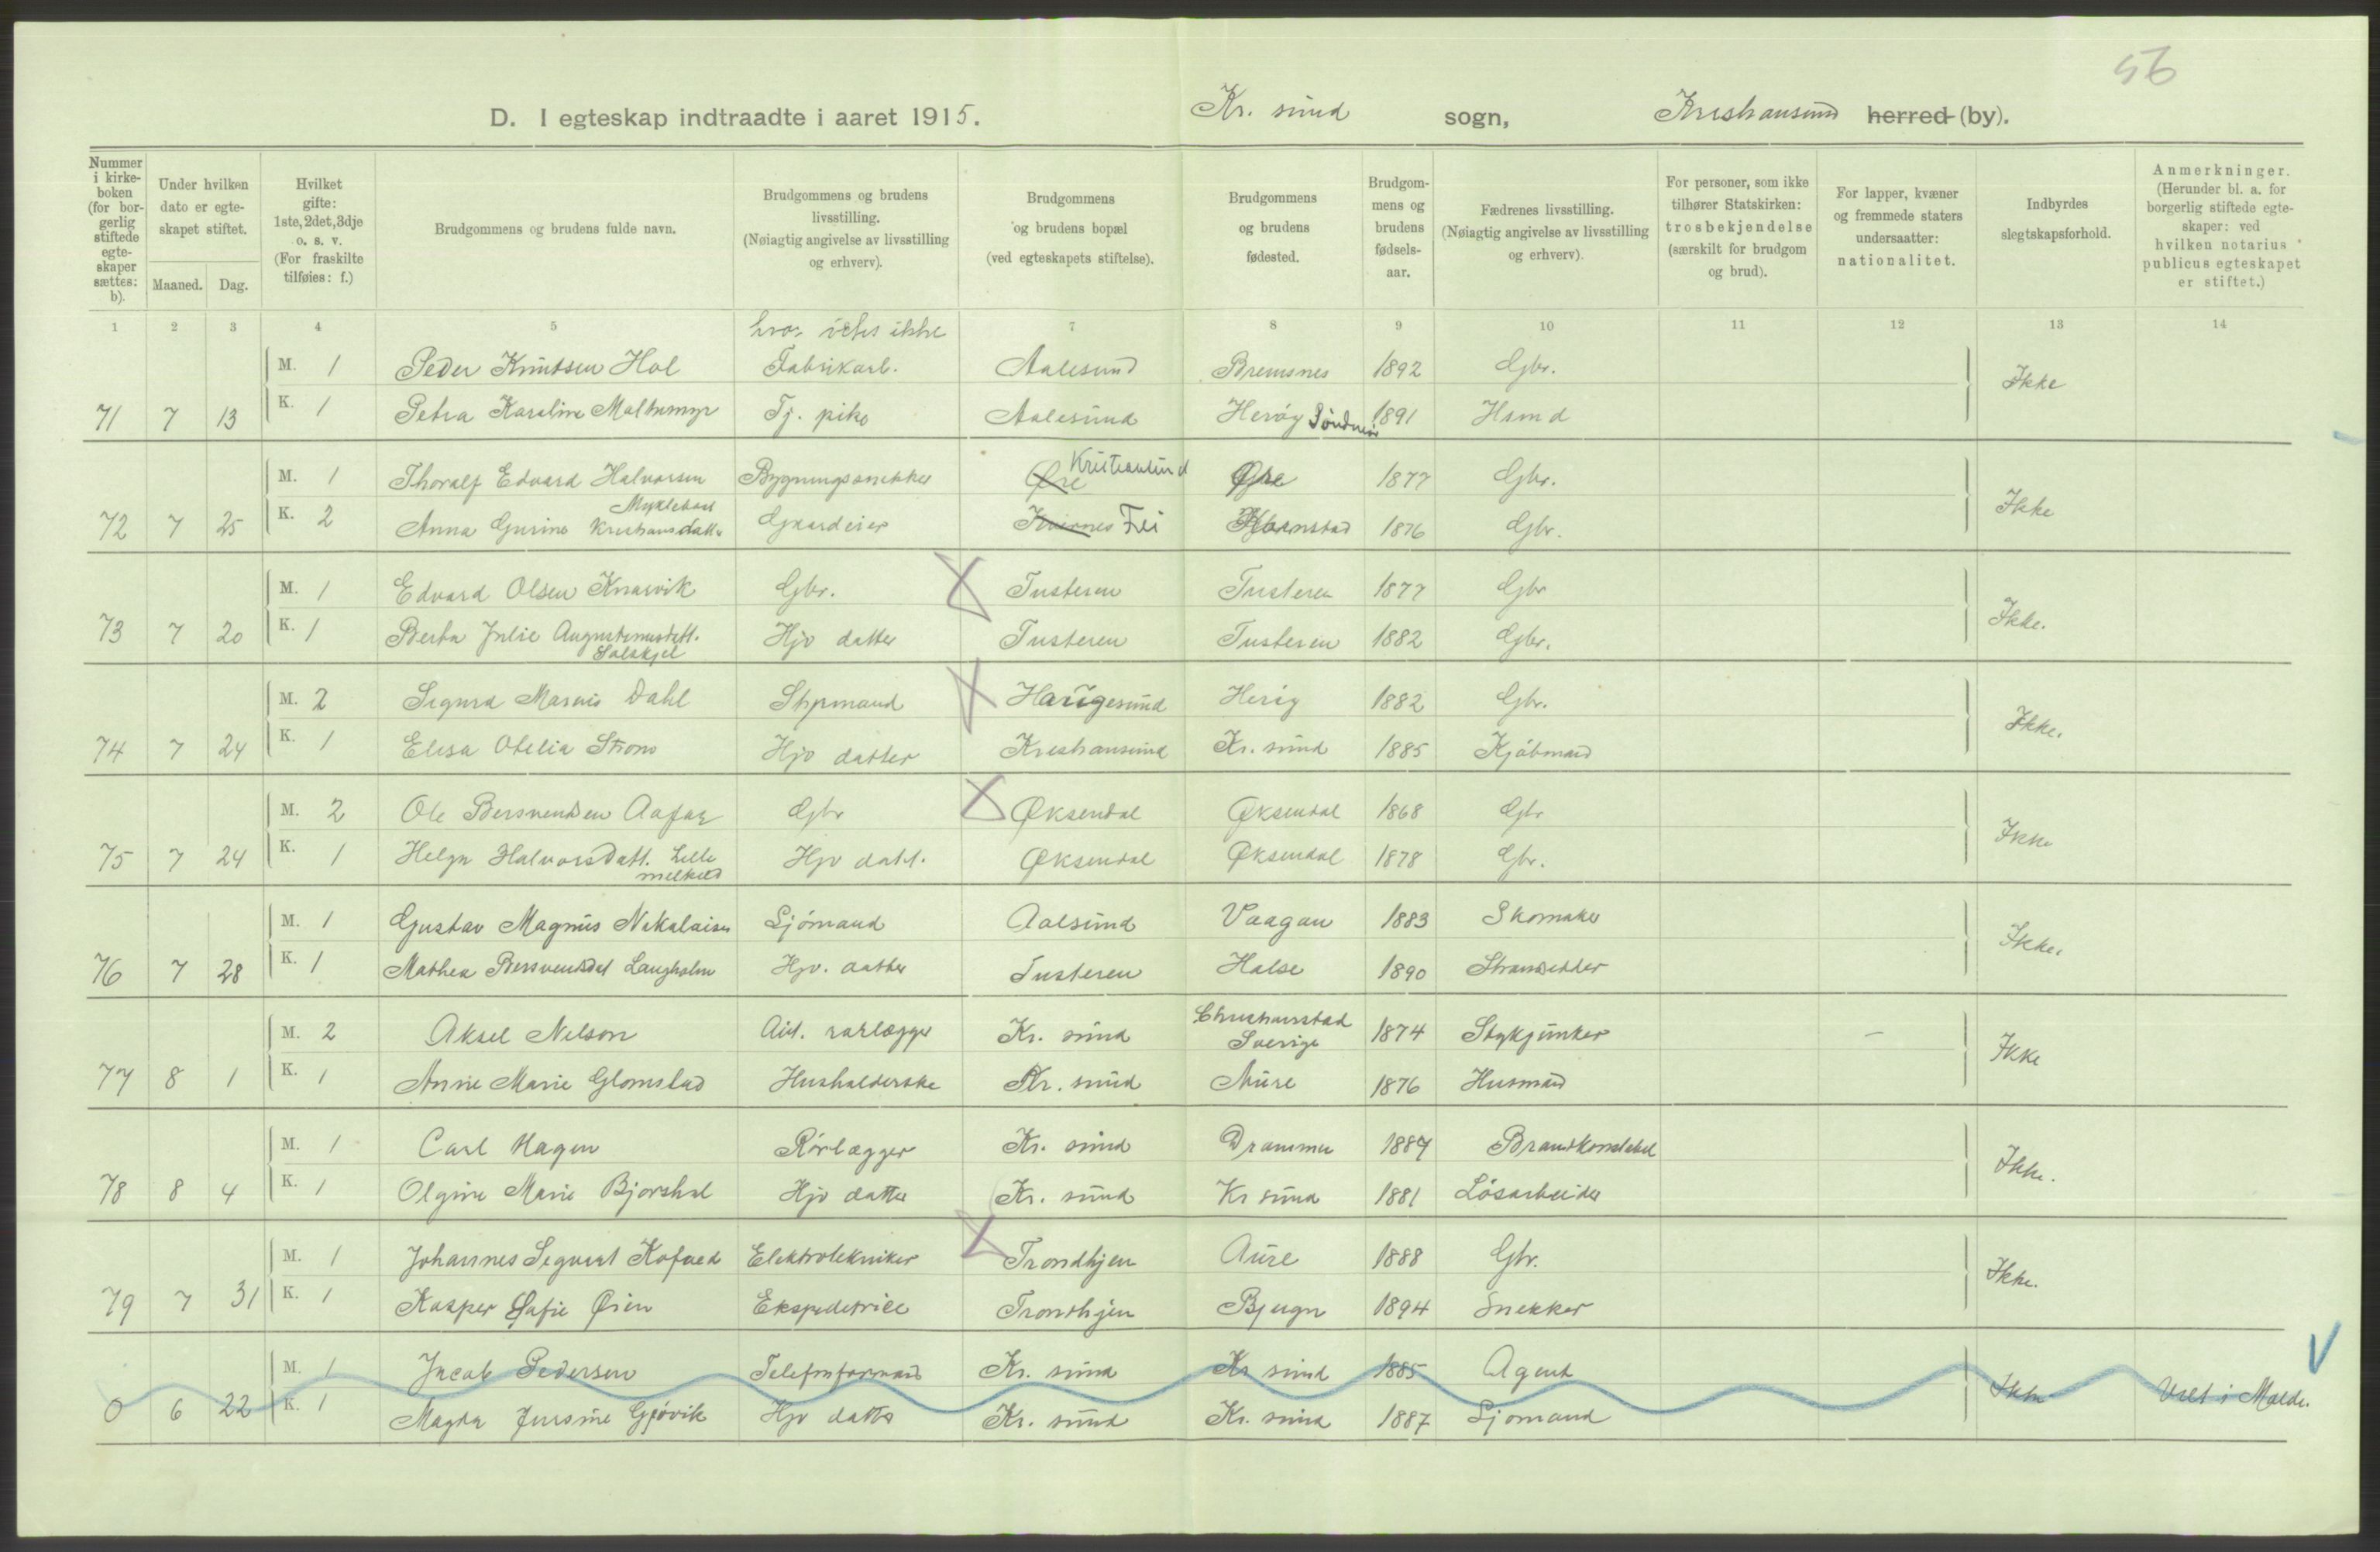 56
D. I egteskap indtraadte i aaret 1915. Kr. sund sogn, Kristiansund herred (by).
Nummer i kirkeboken (for borgerlig stiftede egteskaper sættes: b).
Under hvilken dato er egteskapet stiftet.
Maaned. Dag.
Hvilket gifte: 1ste, 2det, 3dje o. s. v. (For fraskilte tilføies: f.)
Brudgommens og brudens fulde navn.
Brudgommens og brudens livsstilling. (Nøiagtig angivelse av livsstilling og erhverv).
Brudgommens og brudens bopæl (ved egteskapets stiftelse).
Brudgommens og brudens fødested.
Brudgommens og brudens fødselsaar.
Fædrenes livsstilling. (Nøiagtig angivelse av livsstilling og erhverv).
For personer, som ikke tilhører Statskirken: trosbekjendelse (særskilt for brudgom og brud).
For lapper, kvæner og fremmede staters undersaatter: nationalitet.
Indbyrdes slegtskapsforhold.
Anmerkninger. (Herunder bl. a. for borgerlig stiftede egteskaper: ved hvilken notarius publicus egteskapet er stiftet.)
1 2 3 4 5 7 8 9 10 11 12 13 14
hvor vites ikke
M. 1 Peder Knutsen Hol Fabrikarb. Aalesund Bremsnes 1892 Gbr. Ikke
71 7 13 K. 1 Petra Karoline Maltemyr Tj. pike Aalesund Herøy Søndmør 1891 Hsmd
M. 1 Thoralf Edvard Halvorsen Bygningssnekker Øre Kristiansund Øre 1877 Gbr. Ikke
Myklebost
72 7 25 K. 2 Anna Gurine Kristiansdatter Gaardeier Kvernes Frei Kornstad 1876 Gbr.
M. 1 Edvard Olsen Knarvik Gbr. Tusteren Tusteren 1877 Gbr Ikke.
73 7 20 K. 1 Berta Julie Augustinusdatt. Hjv datter Tusteren Tusteren 1882 Gbr.
Solskjel
M. 2 Sigurd Marius Dahl Styrmand Haugesund Herøy 1882 Gbr. Ikke.
74 7 24 K. 1 Elisa Otelia Strøm Hjv datter Kristiansund Kr. sund 1885 Kjøbmand
M. 2 Ole Bersvendsen Gbr Øksendal Øksendal 1868 Gbr Ikke
75 7 24 K. 1 Helga Halvorsdatt. Lille Hjv datt. Øksendal Øksendal 1878 Gbr.
M. 1 Gustav Magnus Nikolaisen Sjømand Aalsund Vaagan 1883 Skomaker Ikke.
76 7 28 K. 1 Mathea Bersvendsdat Langholm Hjv. datter Tusteren Halse 1890 Strandsidder
Christianstad
M. 2 Aksel Nelson Aut. rørlægger Kr. sund Sverige 1874 Stykjunker – Ikke
77 8 1 K. 1 Anne Marie Glomstad Husholderske Kr. sund Aure 1876 Husmand
M. 1 Carl Hagen Rørlægger Kr. sund Drammen 1889 Brandkonstabel Ikke.
78 8 4 K. 1 Olgine Marie Hjv datter Kr. sund Kr sund 1881 Løsarbeider
M. 1 Johannes Sigvart Elektrotekniker Trondhjem Aure 1888 Gbr. Ikke.
79 7 31 K. 1 Kasper Sofie Øien Ekspeditrice Trondhjem Bjugn 1894 Snekker
M. 1 Jacob Pedersen Telefonformand Kr. sund Kr sund 1885 Agent Ikke Viet i Molde.
0 6 22 K. 1 Magda Jensine Gjøvik Hjv datter Kr. sund Kr. sund 1887 Sjømand